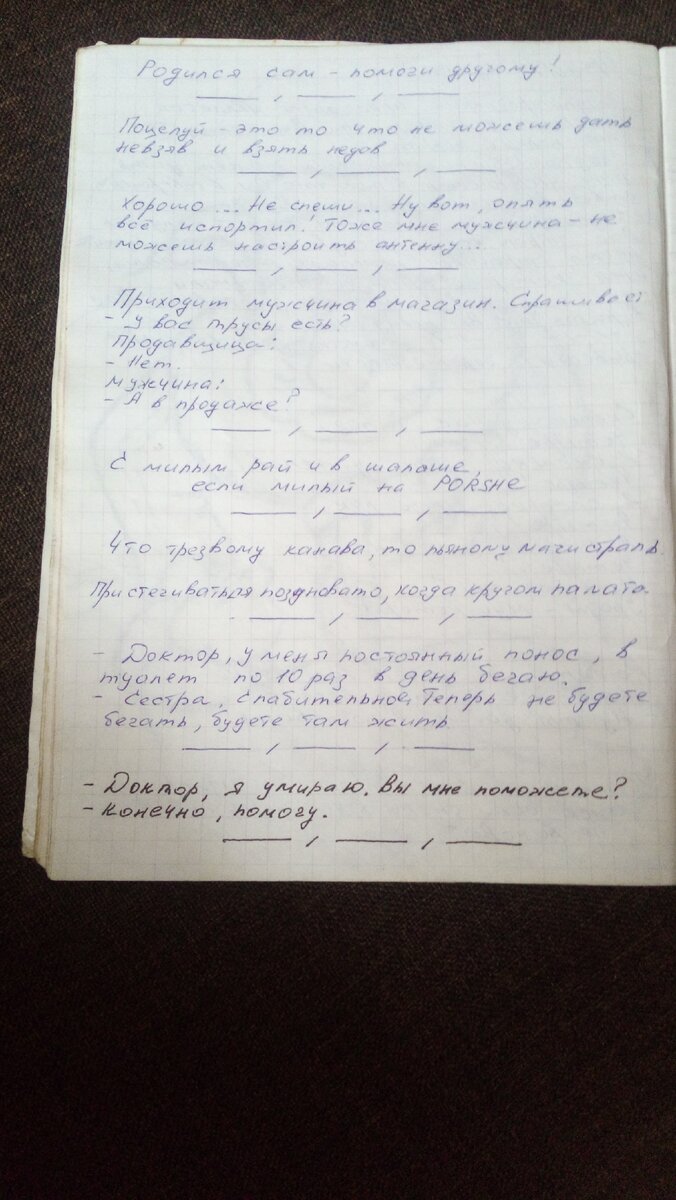 Родился сам - помоги другому!
— , — , —
Поцелуй - это то что не можешь дать
невзяв и взять недав
— , — , —
Хорошо... Не спеши... Ну вот, опять
всё испортил! Тоже мне мужчина - не
можешь настроить антенну...
— , — , —
Приходит мужчина в магазин. Спрашивает
- У вас трусы есть?
Продавщица:
- Нет.
Мужчина:
- А в продаже?
— , — , —
С милым рай и в шалаше,
если милый на PORSHE
— , — , —
Что трезвому канава, то пьяному магистраль.
Пристегиваться поздновато, когда кругом палата.
— , — , —
- Доктор, у меня постоянный понос, в
туалет по 10 раз в день бегаю.
- Сестра, слабительное. Теперь не будете
бегать, будете там жить
— , — , —
- Доктор, я умираю. Вы мне поможете?
- Конечно, помогу.
— , — , —